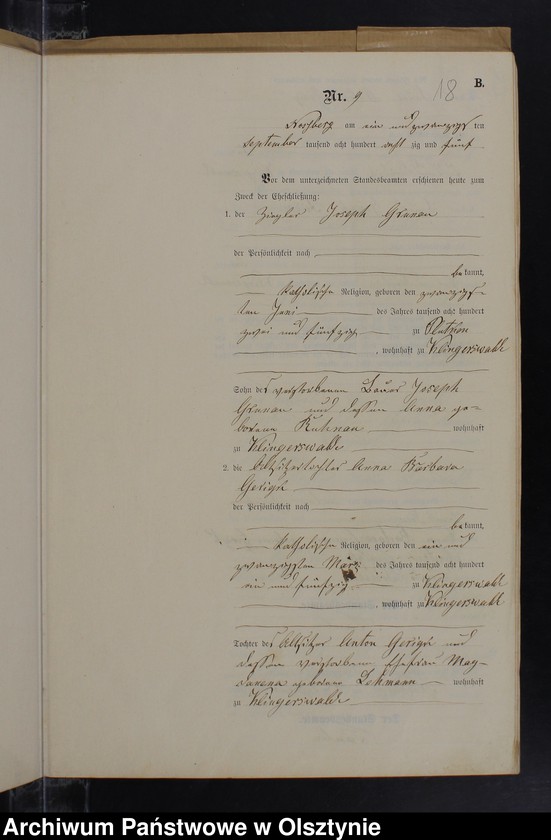 18
B.
Nr. 9
am ein und zwanzigsten
September tausend acht hundert acht zig und fünf
Vor dem unterzeichneten Standesbeamten erschienen heute zum
Zweck der Eheschließung:
1. der Ziegler Joseph Grunau
der Persönlichkeit nach
bekannt,
katholischer Religion, geboren den zwanzigs-
ten Juni des Jahres tausend acht hundert
zwei und fünfzig zu
, wohnhaft zu Klingerswalde
Sohn des verstorbenen Bauer Joseph
Grunau und dessen Anna ge-
borene Kuhnau wohnhaft
zu Klingerswalde
2. die Altsitzertochter Anna Barbara
Gerigk
der Persönlichkeit nach
bekannt,
katholischer Religion, geboren den ein und
zwanzigsten März des Jahres tausend acht hundert
ein und fünfzig zu Klingerswalde
, wohnhaft zu Klingerswalde
Tochter des Altsitzer Anton Gerigk und
dessen verstorbenen Ehefrau Mag-
geborene Lehmann wohnhaft
zu Klingerswalde
Archiwum Państwowe w Olsztynie